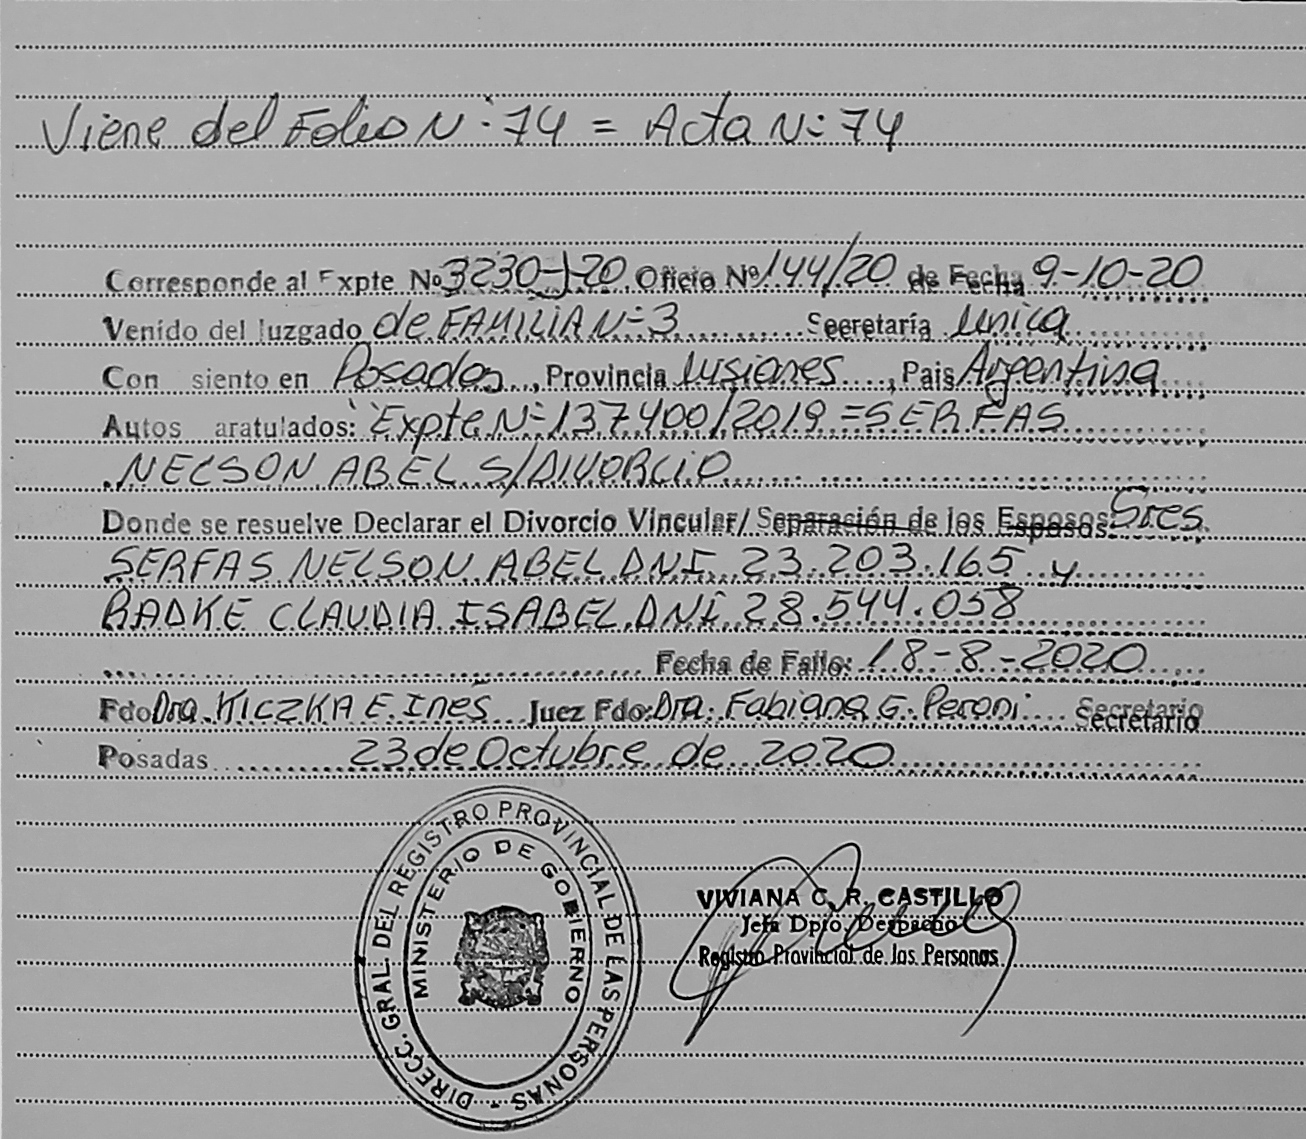 Viene del Folio Nº 74 = Acta Nº 74
Corresponde al Expte No 3230-J-20 Oficio Nº 144/20 de Fecha 9-10-20
Venido del Juzgado de FAMILIA Nº 3 Secretaría única
Con siento en Posadas, Provincia Misiones, Pais Argentina
Autos aratulados: Expte Nº 137400/2019 = SERFAS
NELSON ABEL S/DIVORCIO
Donde se resuelve Declarar el Divorcio Vincular/ Separación de los Esposos Sres
SERFAS NELSON ABEL DNI 23.203.165 y
RADKE CLAUDIA ISABEL DNI 28.544.058
Fecha de Fallo: 18-8-2020
Fdo Dra. KICZKA E. Inés Juez Fdo: Dra. Fabiana G. Peroni Secretario
Posadas 23 de Octubre de 2020
DIRECC. GRAL. DEL REGISTRO PROVINCIAL DE LAS PERSONAS -
MINISTERIO DE GOBIERNO
VIVIANA C. R. CASTILLO
Jefa Dpto. Despacho
Registro Provincial de las Personas